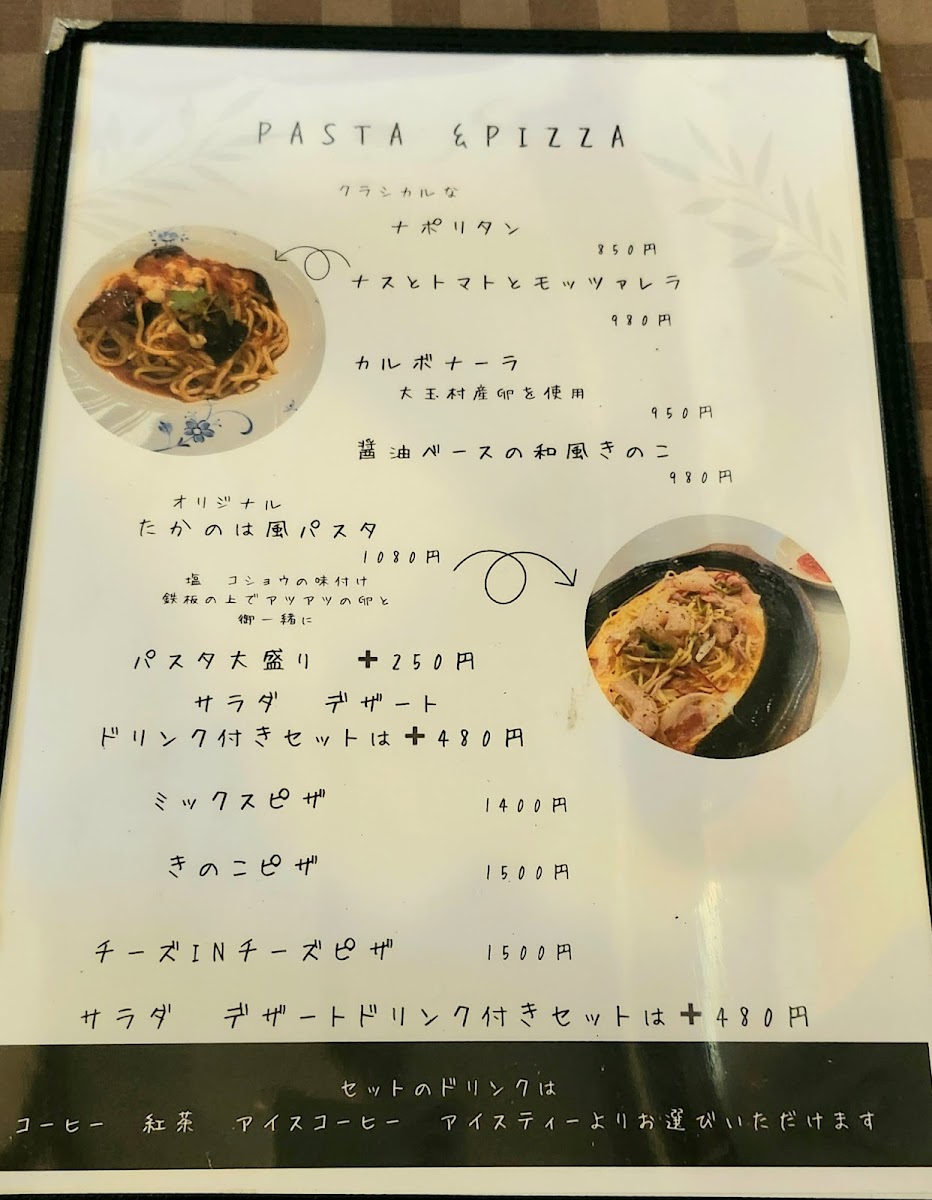 PASTA &PIZZA
クラシカルな
ナポリタン
850円
ナスとトマトとモッツァレラ
980円
カルボナーラ
大玉村産卵を使用
950円
醤油ベースの和風きのこ
980円
オリジナル
たかのは風パスタ
1080円
塩 コショウの味付け
鉄板の上でアツアツの卵と
御一緒に
パスタ大盛り ➕250円
サラダ デザート
ドリンク付きセットは➕480円
ミックスピザ 1400円
きのこピザ 1500円
チーズINチーズピザ 1500円
サラダ デザートドリンク付きセットは➕480円
セットのドリンクは
コーヒー 紅茶 アイスコーヒー アイスティーよりお選びいただけます